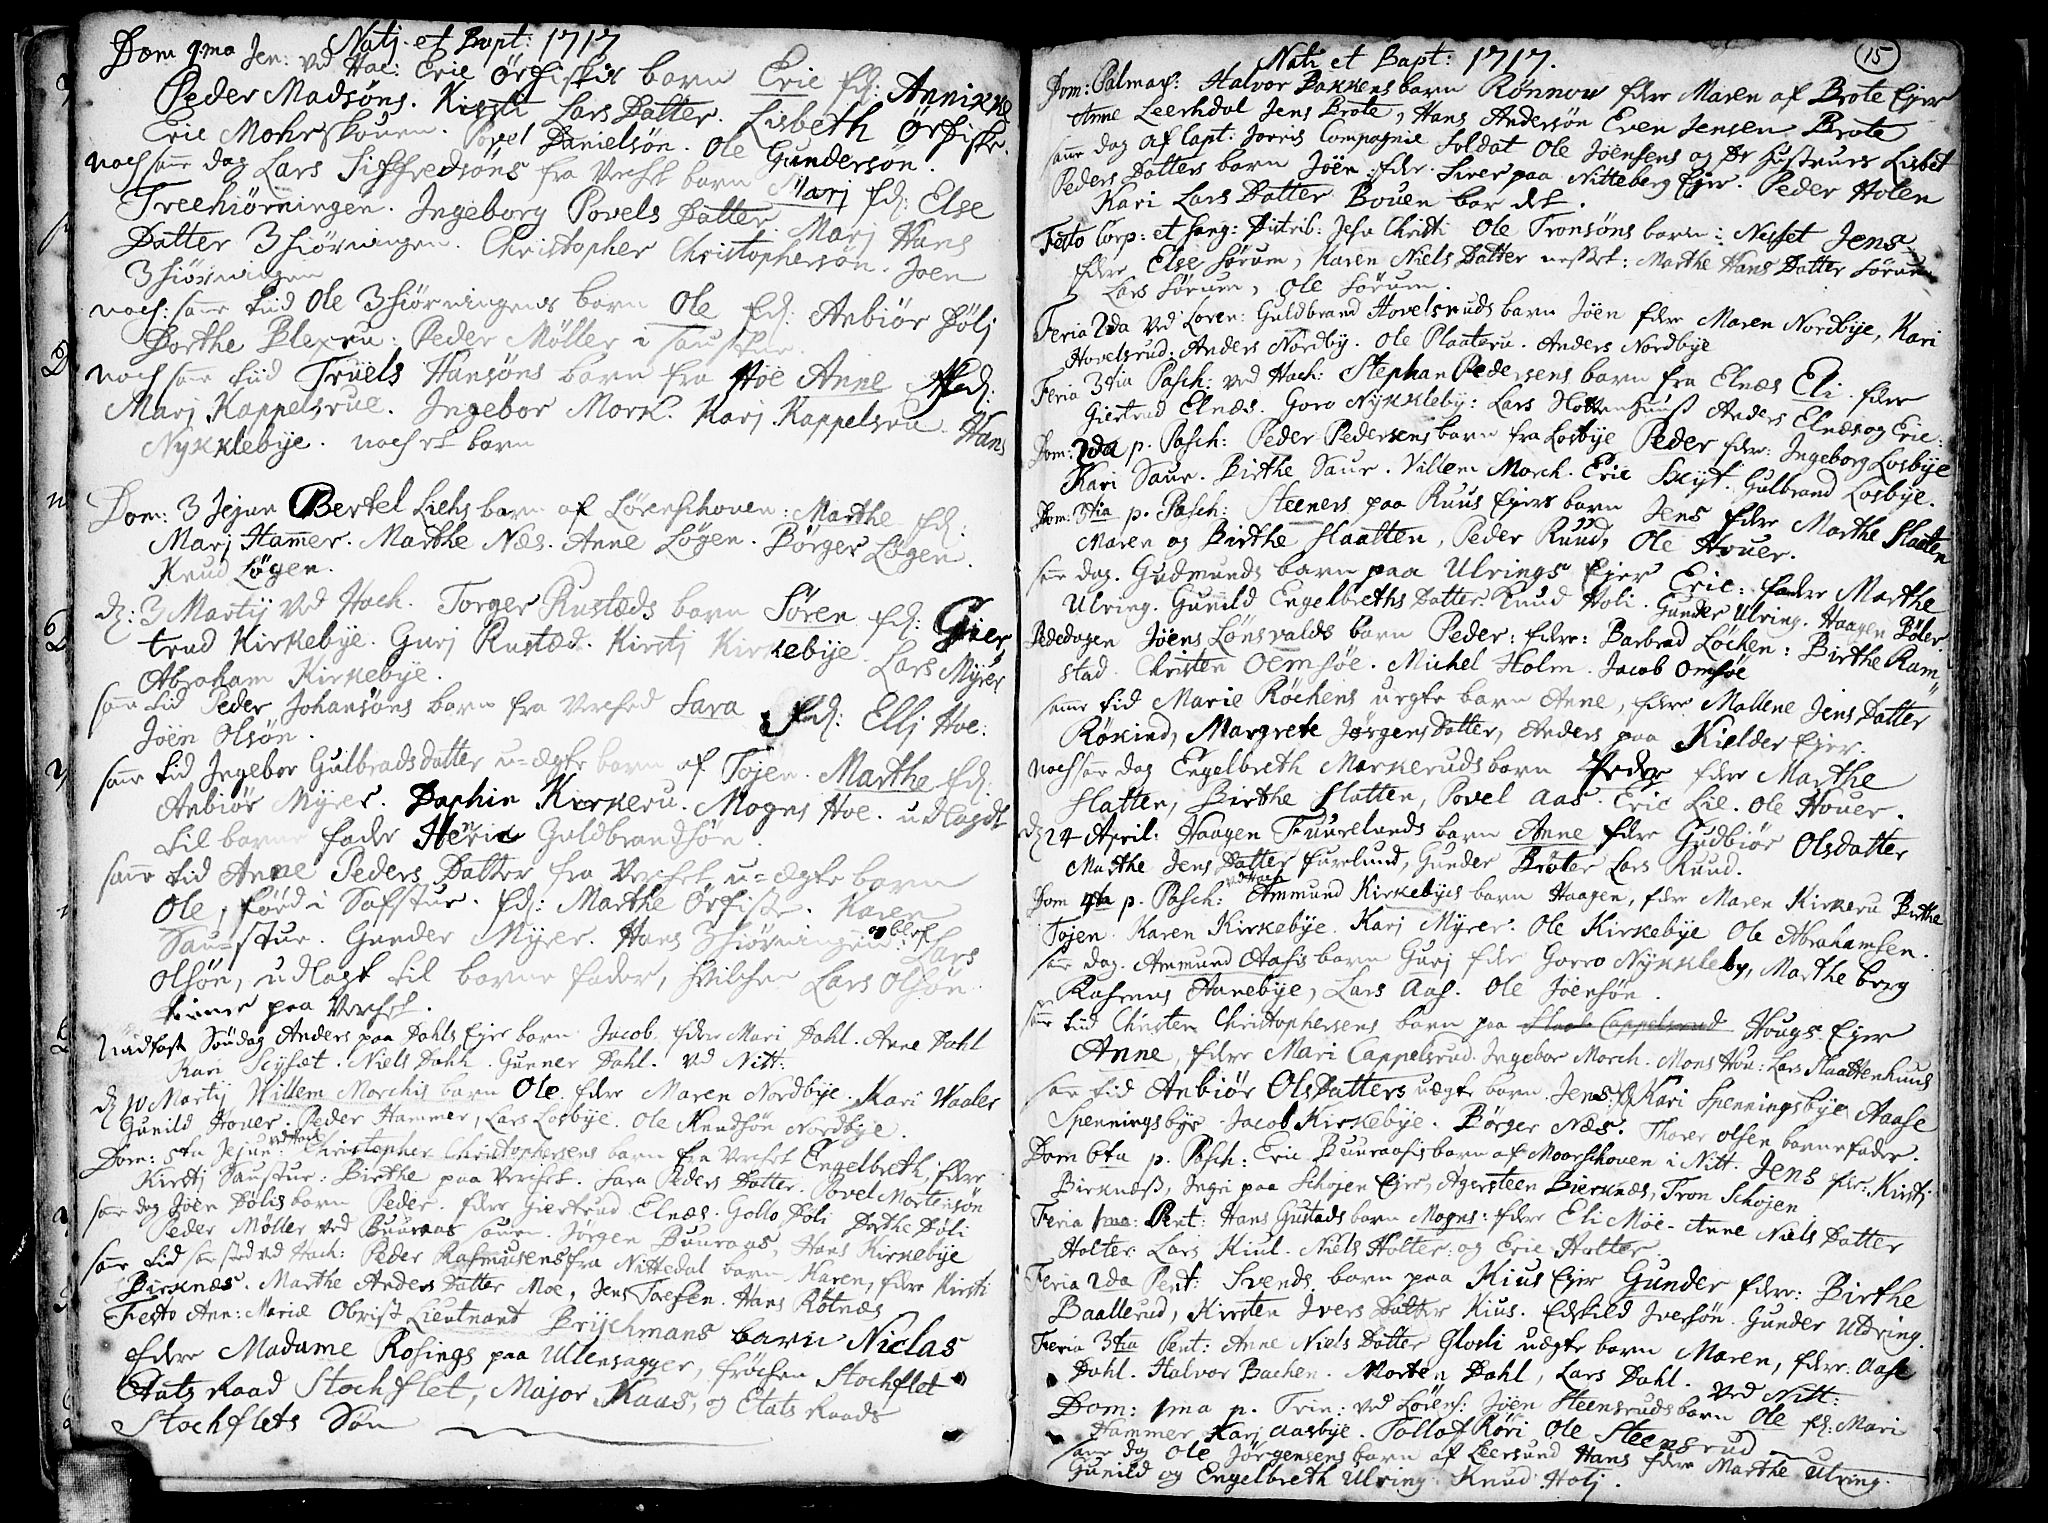 Nati et Bapt: 1717
Dom 1ma Jej: ved Hac: Eric Ørfiskes barn Eric fd: Annikke
Peder Madsöns. Kirsti Lars Datter. Lisbeth Ørfiske.
Eric Mohrskouen. Povel Danielsön. Ole Gundersön.
noch samme dag Lars Siffredsöns fra Verket barn Marj fd: Else
Treehiörningen. Ingeborg Povels Datter. Marj Hans
Datter 3hiörningen. Christopher Christophersön. Joen
3hiörningen
noch: samme tiid Ole 3hiörningens barn Ole fd: Anbiör Dölj
Dorthe Blexru: Peder Möller i Saustuen
noch samme tiid Truels Hansöns barn fra Hoe Anne fd:
Marj Kappelsrue. Ingebor Mork. Karj Kappelsru. Hans
Nykklebye. noch et barn
Dom: 3 Jejun Bertel Liehs barn af Lörenshouen: Marthe fd.
Marj Hammer. Marthe Næs. Anne Lögen. Börger Lögen.
Knud Lögen.
d: 3 Martij ved Hach. Torger Rustæds barn Sören fd: Gier
trud Kirkebye. Gurj Rustæd. Kirstj Kirkebye. Lars Myrer
Abraham Kirkebye.
samme tid Peder Johansöns barn fra Verked Sara fd: Ellj Hoe:
Joen Olsön.
samme tid Ingebor Gulbrads datter u=ægte barn af Tøjen. Marthe fd.
Anbiör Myrer. Dorthin Kirkeru. Mogns Hoe. udlagdt
til barne fader Henric Guldbrandsön.
samme tid Anne Peders Datter fra Verket u=ægte barn
Ole, föed i Safstue. fd: Marthe Örfiske. Karen
Sau=stue. Gunder Myrer. Hans 3hiörningen: og blef Lars
Olsön, udlagt til barne fader, Lars Olsön
tiener paa Verket.
Midfaste Söndag Anders paa Dahls Ejer barn Jacob fdre Mari Dahl. Anne Dahl
Kari Scyset. Niels Dahl. Gunner Dahl. ved Nitt:
d 10 Martij Willem Morchis barn Ole. fdre Maren Nordbye. Kari Waaler
Gunild Houer. Peder Hammer, Lars Losbye. Ole Knudsön Nordbye.
Dom: 5ta Jejun: ved Hach Christopher Christophersens barn fra Verket Engelbreth, fdre
Kirstj Saustue. Birthe paa Verket. Sara Peders Datter. Povel Mortensön
samme dag Joen Dölis barn Peder. fdre Giertrud Elnæs. Gollo Döli Dorthe Döli
Peder Möller ved Buuraas sauen. Jörgen Buuraas, Hans Kirkebye
samme tid samme sted ved Hach: Peder Rasmusens fra Nittedal barn Karen, fdre Kirsti
Birknæs. Marthe Anders Datter Moe, Jens Toesen. Hans Rötnæs
Festo Ann: Mariæ Obrist Lieutnand Brijchmans barn Niclas
fdre Madame Rosings paa Ullensagger, fröchen Stochflet
Etats Raad Stochflet, Major Kaas, og Etats Raads
Stochflets Sön
15
Nati et Bapt: 1717.
Dom: Palmar: Halvor Bakkens barn Rönnou fdre Maren af Brote Ejer
Anne Leerhdal Jens Brote, Hans Andersön Even Jensen Brote
samme dag af Capt: Jorris Compagnie Soldat Ole Joensens og Dr Hustrues Lisbet
Peders Datters barn Joen: fdre. Sirer paa Nitteberg Ejer. Peder Holen
Kari Lars Datter Bouen bar det.
Festo Corp: et sang: Distrib: Jesu Christi Ole Tronsöns barn: Nesset Jens
fdre, Else Sörum, Karen Niels Datter nesset: Marthe Hans Datter Sörum
Lars Sörum, Ole Sörum.
Feria 2da ved Loren: Guldbrand Hovelsruds barn Joen fdre Maren Nordbye, Kari
Hovelsrud: Anders Nordby. Ole Plaateru. Anders Nordbye
Feria 3tia Pasch: ved Hach: Stephan Pedersens barn fra Elnæs Eli. fdre
Giertrud Elnæs. Goro Nykkleby: Lars Anders Elnæs og Eric:
Dom: 2da p. Pasch: Peder Pedersens barn fra Losbye Peder fdre: Ingeborg Losbye
Kari Saur. Birthe Saur. Villem Morch. Eric Skyt. Gulbrand Losbye.
Dom: 3tia p. Pasch: Steeners paa Ruus Ejers barn Jens fdre Marthe Slatten
Maren og Birthe Slaatten, Peder Ruud, Ole Houer.
samme dag. Gudmunds barn paa Ulrings Ejer Eric: fadre Marthe
Ulring. Gunild Engelbreths Datter. Knud Holi. Gunder Ulring. Haagen Böler
Bededagen Joens Lönsvalds barn Peder: fdre: Barbrad Löchen: Birthe Ram=
stad. Christen Oemsöe. Michel Holm. Jacob Omsöe
samme tid Marie Röchens uegte barn Anne, fdre Mallene Jens Datter
Rökind, Margrete Jörgens Datter, Anders paa Kielder Ejer.
noch samme dag Engelbreth Markeruds barn Peder fdre Marthe
Slatten, Birthe Slatten, Povel Aas. Eric Lie. Ole Houer.
d 24 April: Haagen Fuurelunds barn Anne fdre Gudbiör Olsdatter
Marthe Jens Datter Furelund, Gunder Bröter Lars Ruud.
Dom 4ta p. Pasch: ved Hach Ammund Kirkebyes barn Haagen, fdre Maren Kirkeru Birthe
Tojen. Karen Kirkebye. Karj Myrer. Ole Kirkebye Ole Abrahamsen.
samme dag. Ammund Aasis barn Gurj fdre Gorro Nykkleby, Marthe berg
Rasmus Hanebye, Lars Aas. Ole Joensön.
samme tiid Christen Christophersens barn paa Cappelsrud Hougs Ejer
Anne, fdre Mari Cappelsrud. Ingebor Morch. Mons Hou: Lars Slaattenhuus
samme tid Anbiör Ols Datters uægte barn. Jens: fd Kari Spenningsbye, Aase
Spenningsbye. Jacob Kirkebye. Börger Næs. Thorer Olsen barnefader.
Dom 6ta p. Pasch: Eric Buuraasis barn af Moorshouen i Nitt. Jens fdr: Kirsti
Birknæs, Ingri paa Schojen Ejer, Agersteen Bierknæs, Tron Schojen
Feria 1ma: Pent: Hans Gustads barn Mogns: fdre Eli Möe. Anne Niels Datter
Holter: Lars Kiul. Niels Holter: og Eric Holter.
Feria 2da Pent: Svends barn paa Kius Ejer Gunder fdre: Birthe
Baallerud, Kirsten Ivers Datter Kius. Edskild Iversön. Gunder Ulring.
Feria 3tia Pent: Anne Niels Datter Glosli uægte barn Maren, fdre: Aase
Dahl. Halvor Bachen. Morten Dahl, Lars Dahl. ved Nitt:
Dom: 1ma p. Trin: ved Lörens: Joen Steensruds barn Ole fd: Mari
Hammer Karj Aasbye. Tollof Röri Ole Steensrud
samme dag Ole Jörgensens barn af Leersund Hans fdre Marthe Ulring.
Gunild og Engelbreth Ulring. Knud Holj.